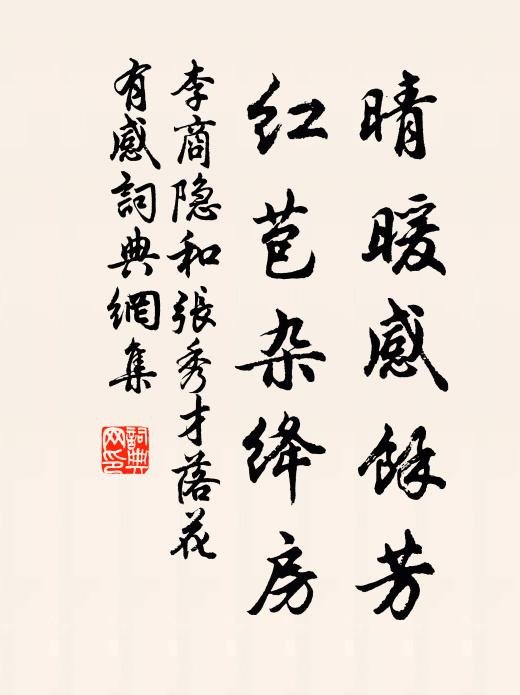 晴暖感餘芳
红苞杂绛房
李商隐和張秀才落花
有感詞典網集
詞典
网印